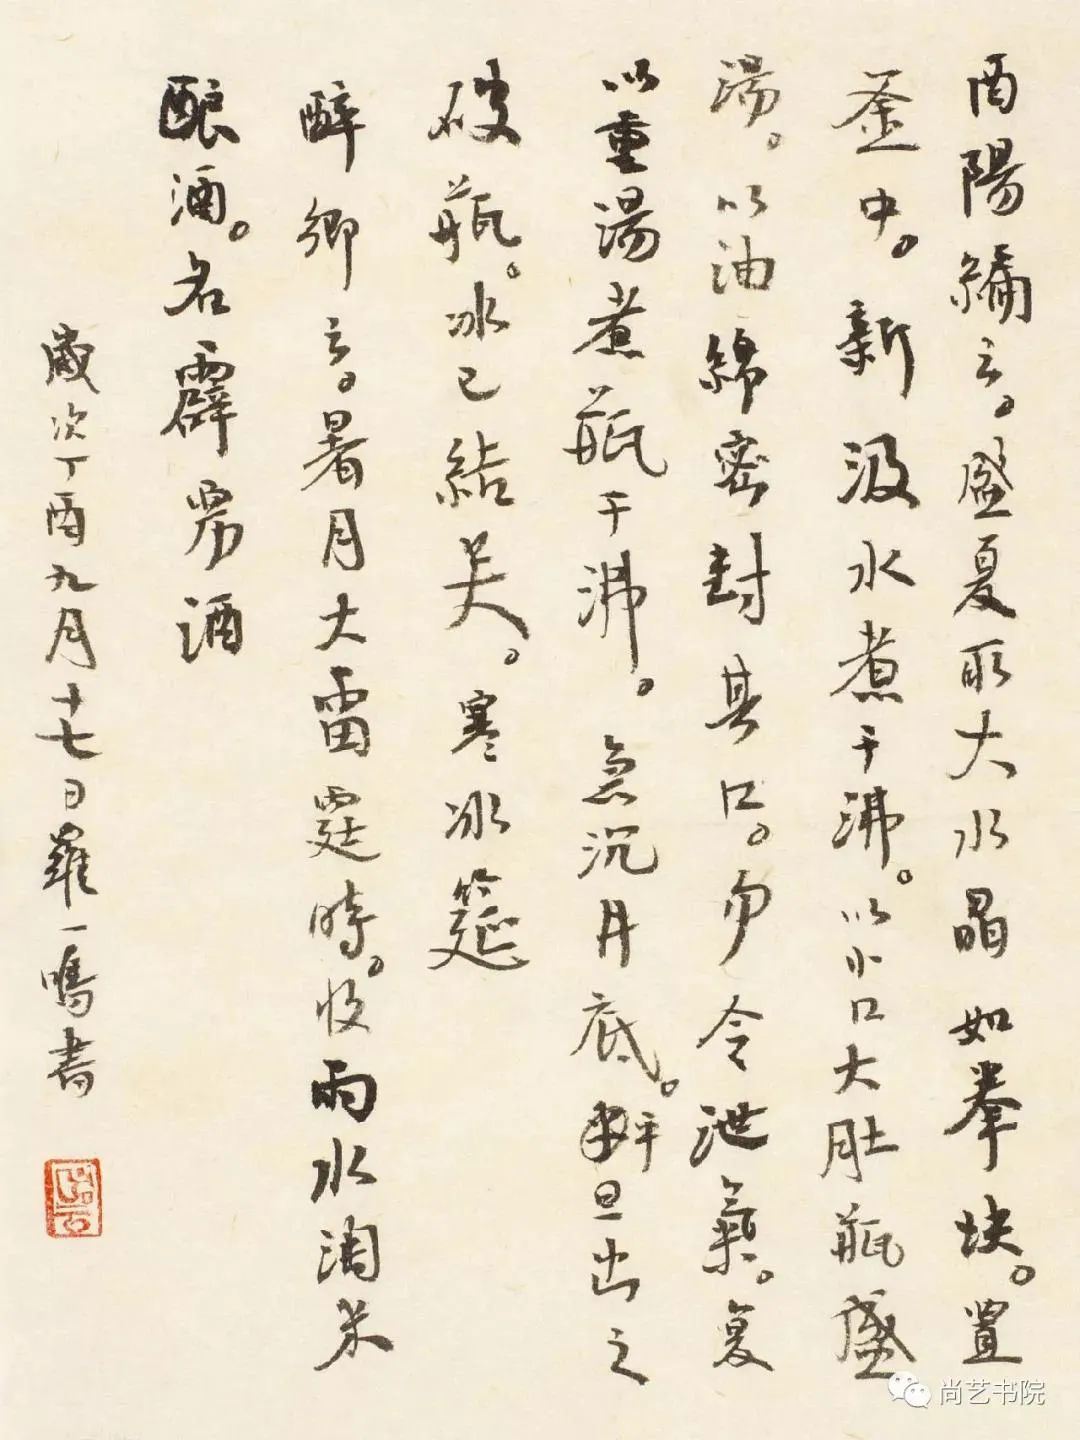 酉陽編云。盛夏取大水晶如拳块。置
釜中。新汲水煮千沸。以小口大肚瓶盛
湯。以油綿密封其口。勿令泄氣。复
以重湯煮瓶千沸。急沉井底。平旦出之
破瓶。冰已結矣。寒冰筵
醉卿云。暑月大雷霆時。收雨水淘米
酿酒。名霹雳酒
歲次丁酉九月十七日羅一鳴書
尚艺书院